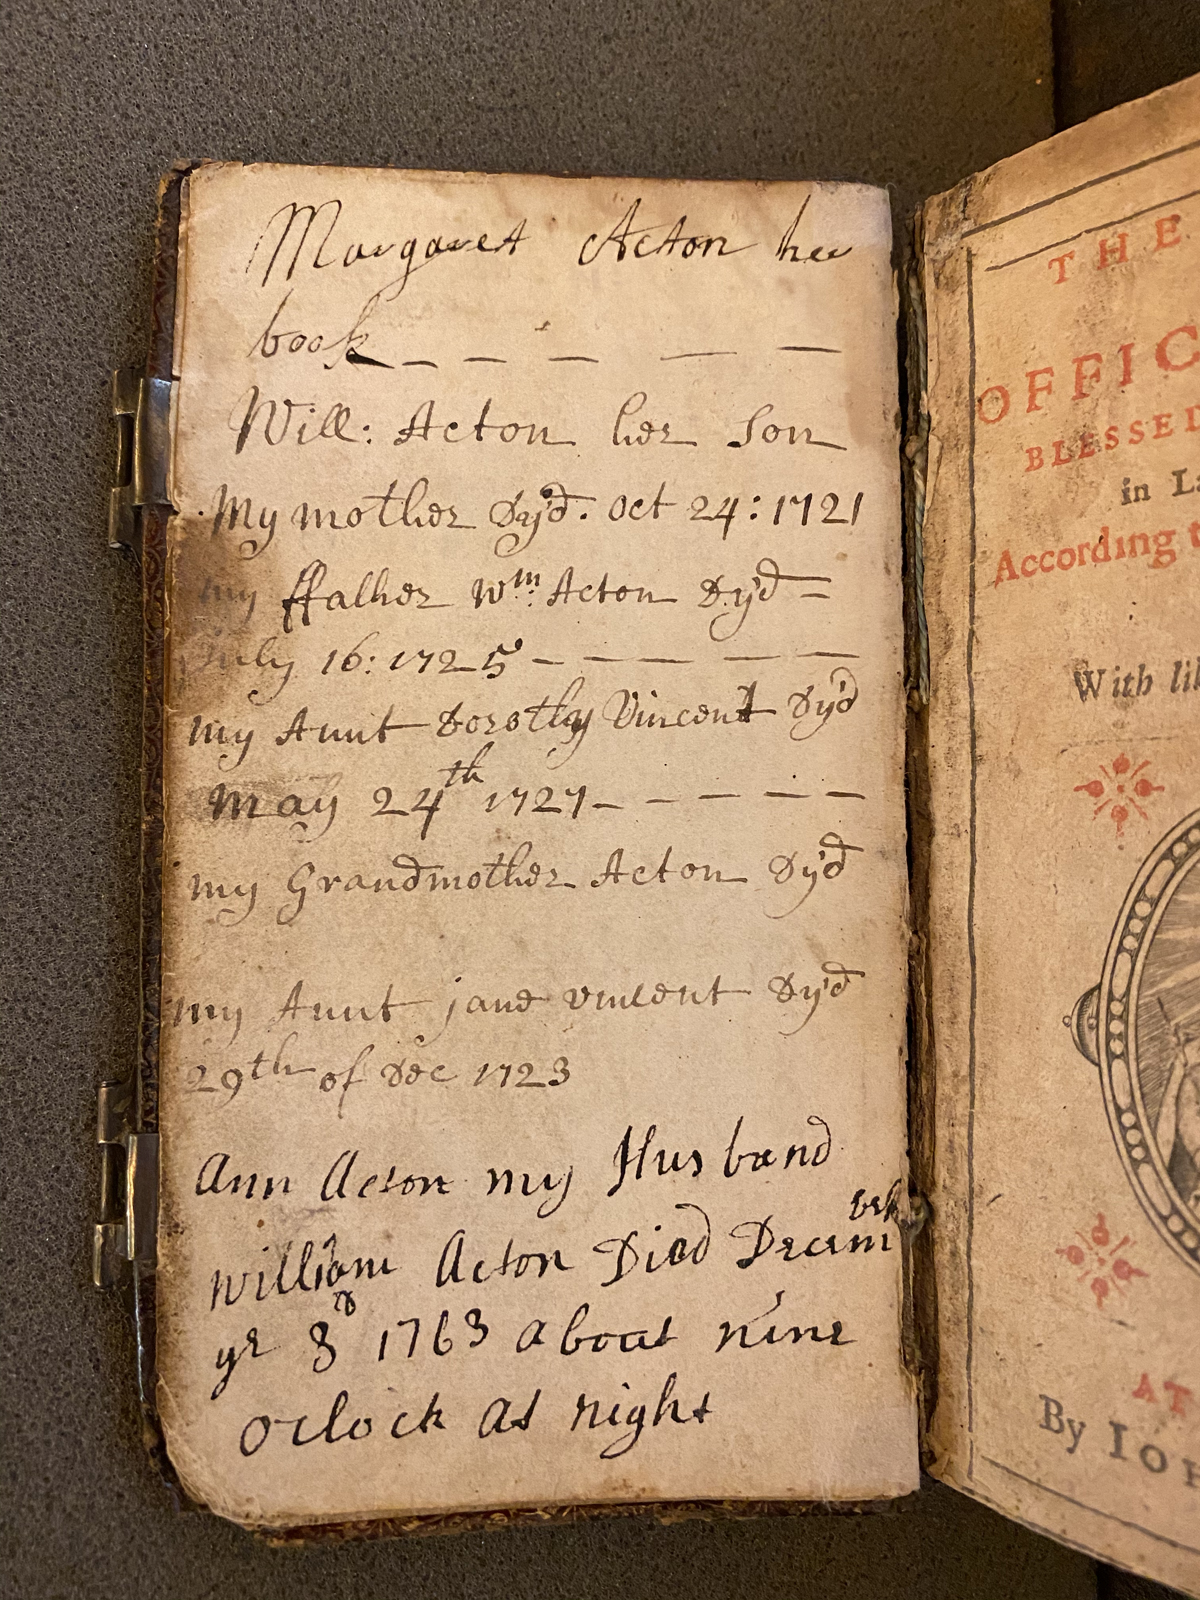 Margaret Acton her
book _ _ _ _ _
Will: Acton her Son
My mother Dy'd. oct 24: 1721
my ffather Wm: Acton Dy'd =
July 16: 1725 - - - - -
my Aunt Dorothy Vincent Dy'd
May 24th 1727 - - - - -
my Grandmother Acton Dy'd
my Aunt jane vincent Dy'd
29th of Dec 1723
Ann Acton my Husband
William Acton Died Decembr
ye 3d 1763 about nine
o'clock at night
THE
OFFIC
BLESSE
in La
According t
With li
AT
By IOH